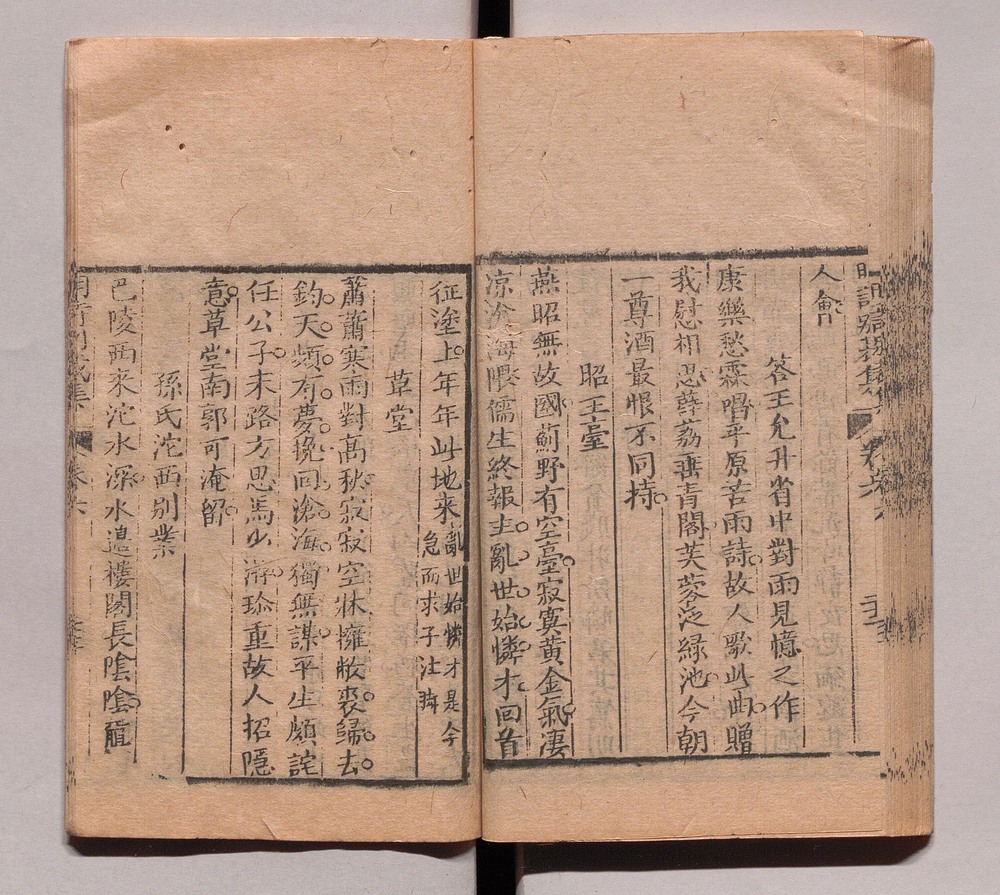 人會
答王允升省中對雨見憶之作
康樂愁霖唱平原苦雨詩故人歌此曲贈
我慰相思薜荔垂青閣芙蓉泛綠池今朝
一尊酒最恨不同持
昭王臺
燕昭無故國薊野有空臺寂寞黃金氣凄
涼滄海隈儒生終報主亂世始憐才回首
征塗上年年此地來
亂世始憐才是今
急而求子注脚
草堂
蕭蕭寒雨對高秋寂寂空牀擁敝裘歸去
釣天頻有夢挽回滄海獨無謀平生頗詫
任公子末路方思馬少游珍重故人招隱
意草堂南郭可淹留
孫氏沱西別業
巴陵西來沱水深水邊樓閣長陰陰龍
卷六
卷六